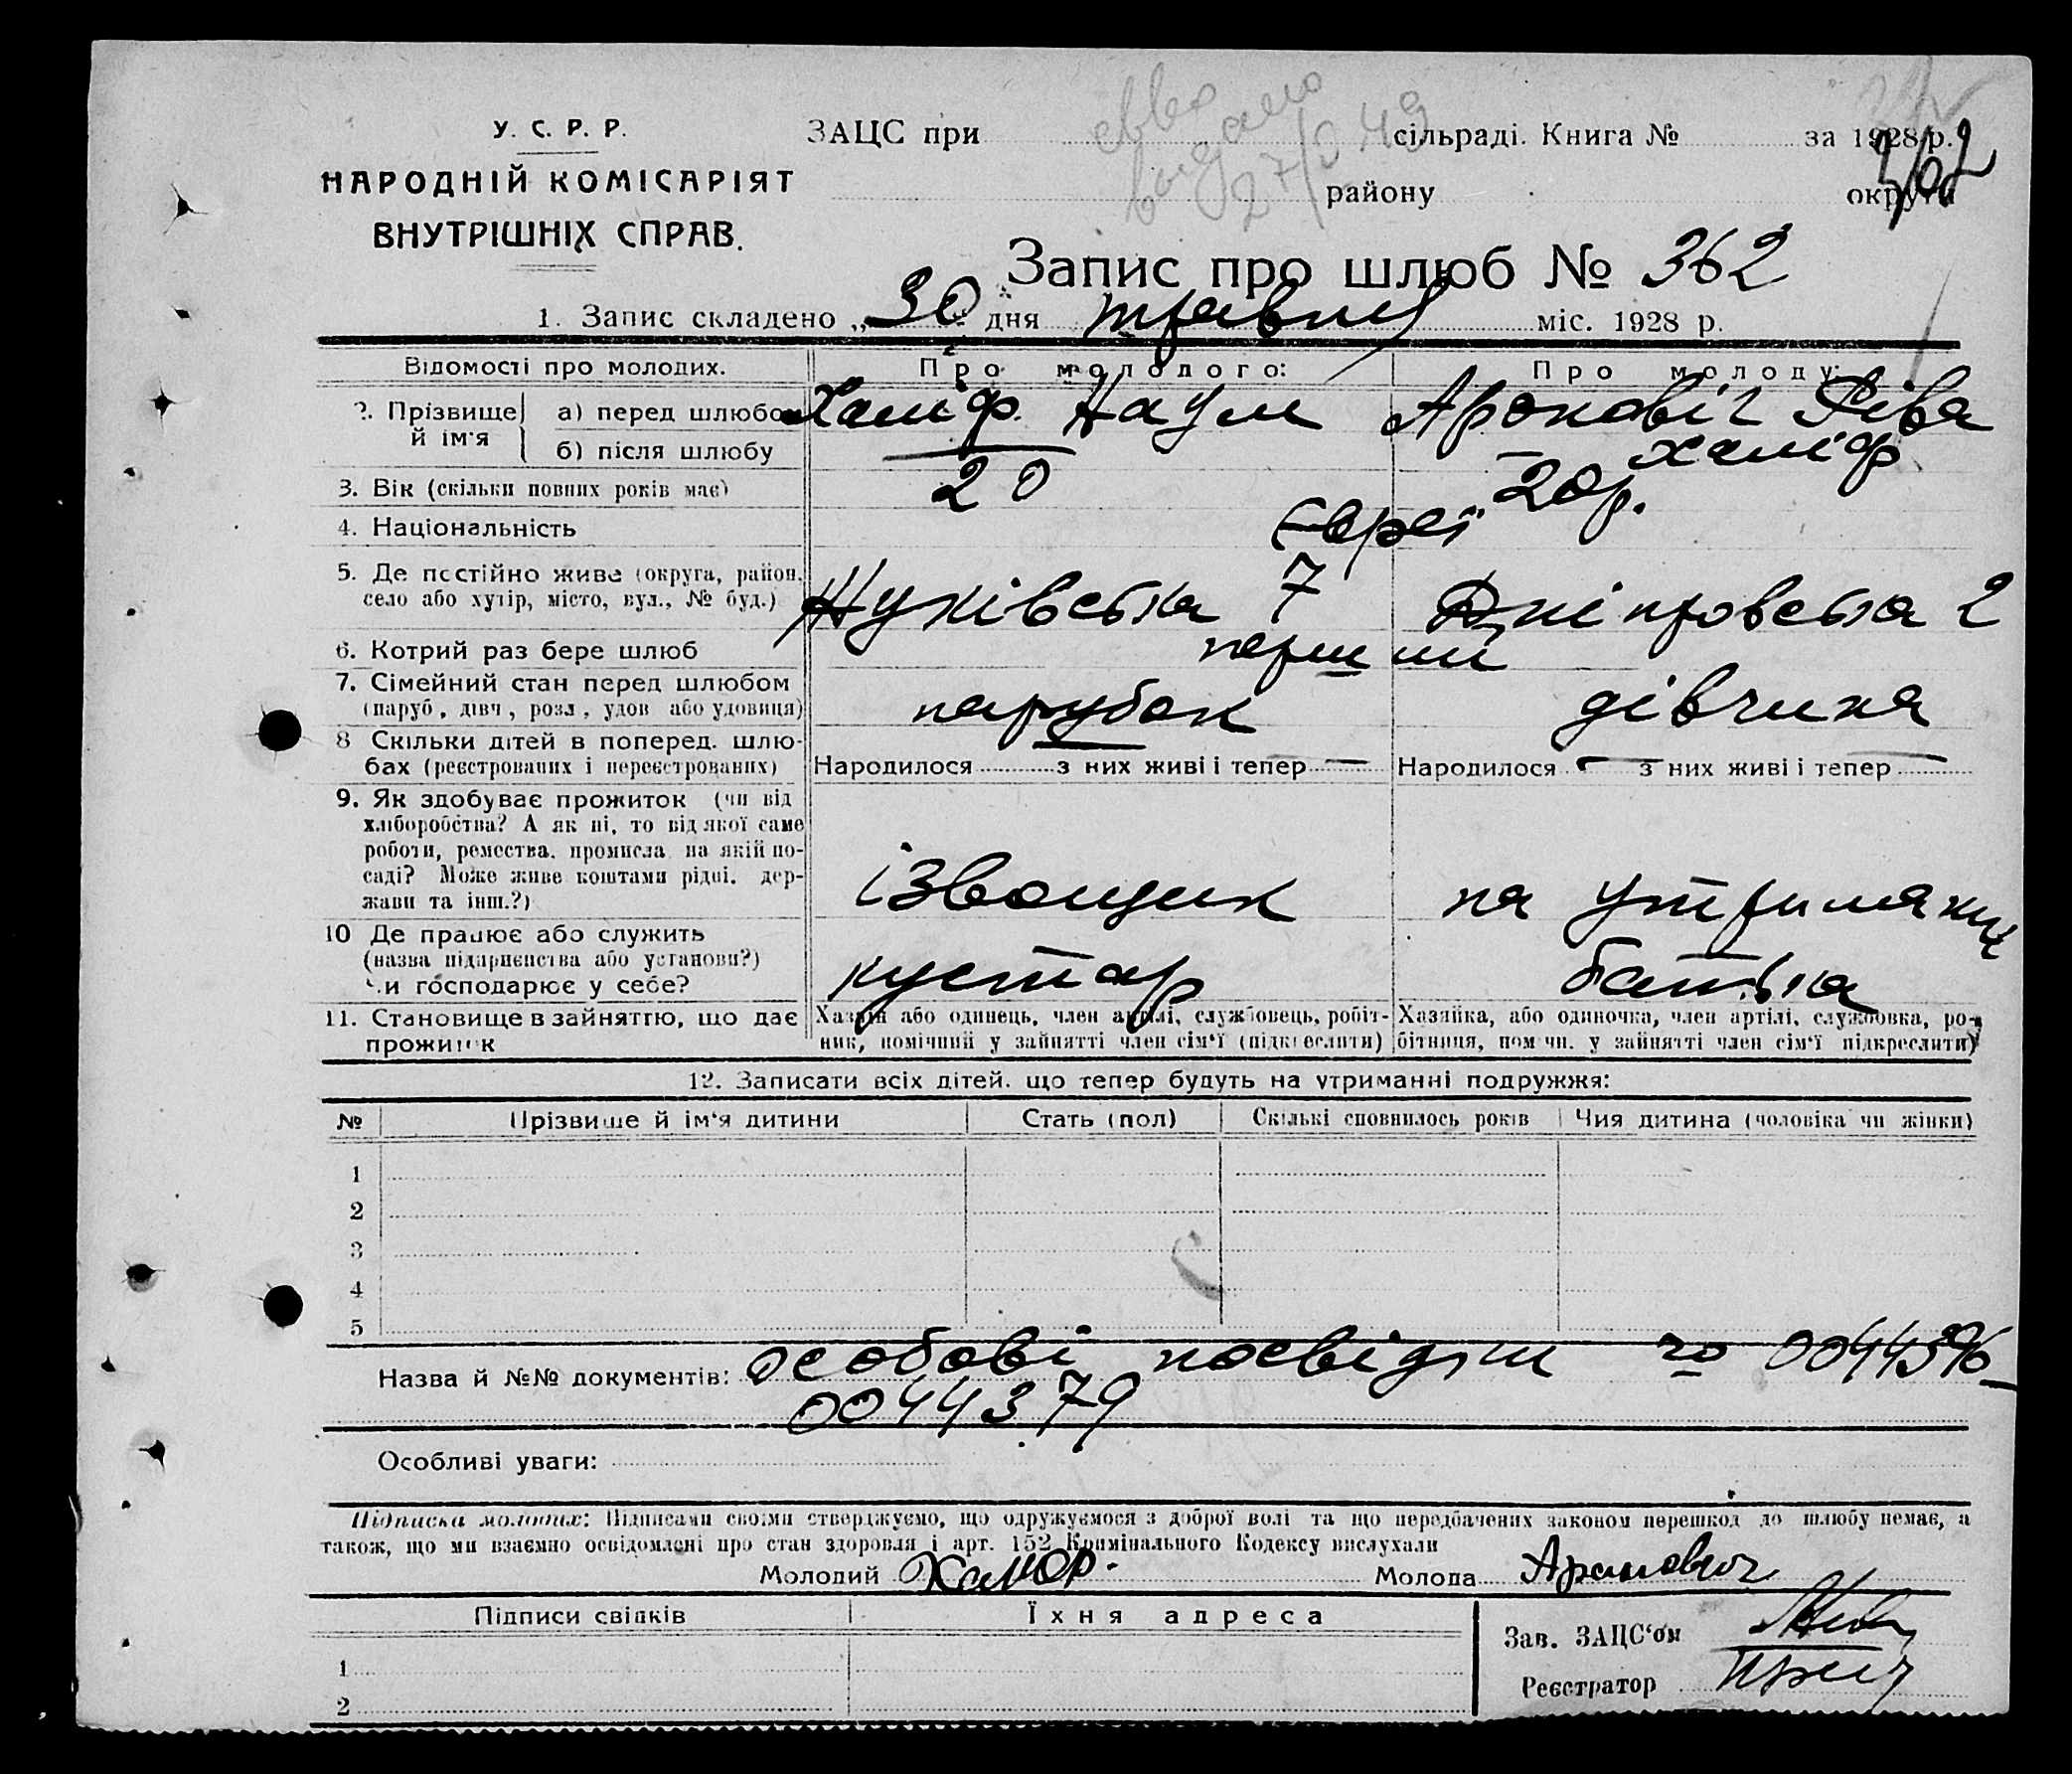 У. С. Р. Р.
НАРОДНІЙ КОМІСАРІЯТ
ВНУТРІШНІХ СПРАВ.
ЗАЦС при сільраді. Книга № за 1928 р.
району округи
Запис про шлюб № 362
1. Запис складено „30" дня травня міс. 1928 р.
Відомості про молодих. Про молодого: Про молоду:
2. Прізвище й ім'я
а) перед шлюбом Халіф Наум Ароновіч Ріва
б) після шлюбу — — Халіф
3. Вік (скільки повних років має) 20 20 р.
4. Національність Євреї
5. Де постійно живе (округа, район, село або хутір, місто, вул., № буд.) 7 Дніпровська 2
6. Котрий раз бере шлюб перший
7. Сімейний стан перед шлюбом (паруб., дівч., розл., удов або удовиця) парубок дівчина
8 Скільки дітей в поперед. шлюбах (реєстрованих і нереєстрованих)
Народилося — з них живі і тепер —
Народилося — з них живі і тепер —
9. Як здобуває прожиток (чи від хліборобства? А як ні, то від якої саме роботи, ремества, промисла, на якій посаді? Може живе коштами рідні, держави та інш.?) ізвощик на утриманні
10 Де працює або служить (назва підприємства або установи?) Чи господарює у себе? кустар батька
11. Становище в зайняттю, що дає прожиток
Хазяїн або одинець, член артілі, службовець, робітник, помічний у зайнятті член сім'ї (підкреслити)
Хазяйка, або одиночка, член артілі, службовка, робітниця, помічн. у зайнятті член сім'ї підкреслити)
12. Записати всіх дітей, що тепер будуть на утриманні подружжя:
№ Прізвище й ім'я дитини Стать (пол) Скількі сповнилось років Чия дитина (чоловіка чи жінки)
1
2
3
4
5
Назва й №№ документів: особові посвідки
0044379
Особливі уваги:
Підписка молодих: Підписами своїми стверджуємо, що одружуємося з доброї волі та що передбачених законом перешкод до шлюбу немає, а
також, що ми взаємно освідомлені про стан здоровля і арт. 152 Кримінального Кодексу вислухали
Молодий Халіф. Молода Аронович
Підписи свідків Їхня адреса
Зав. ЗАЦС'ом
1
Реєстратор
2